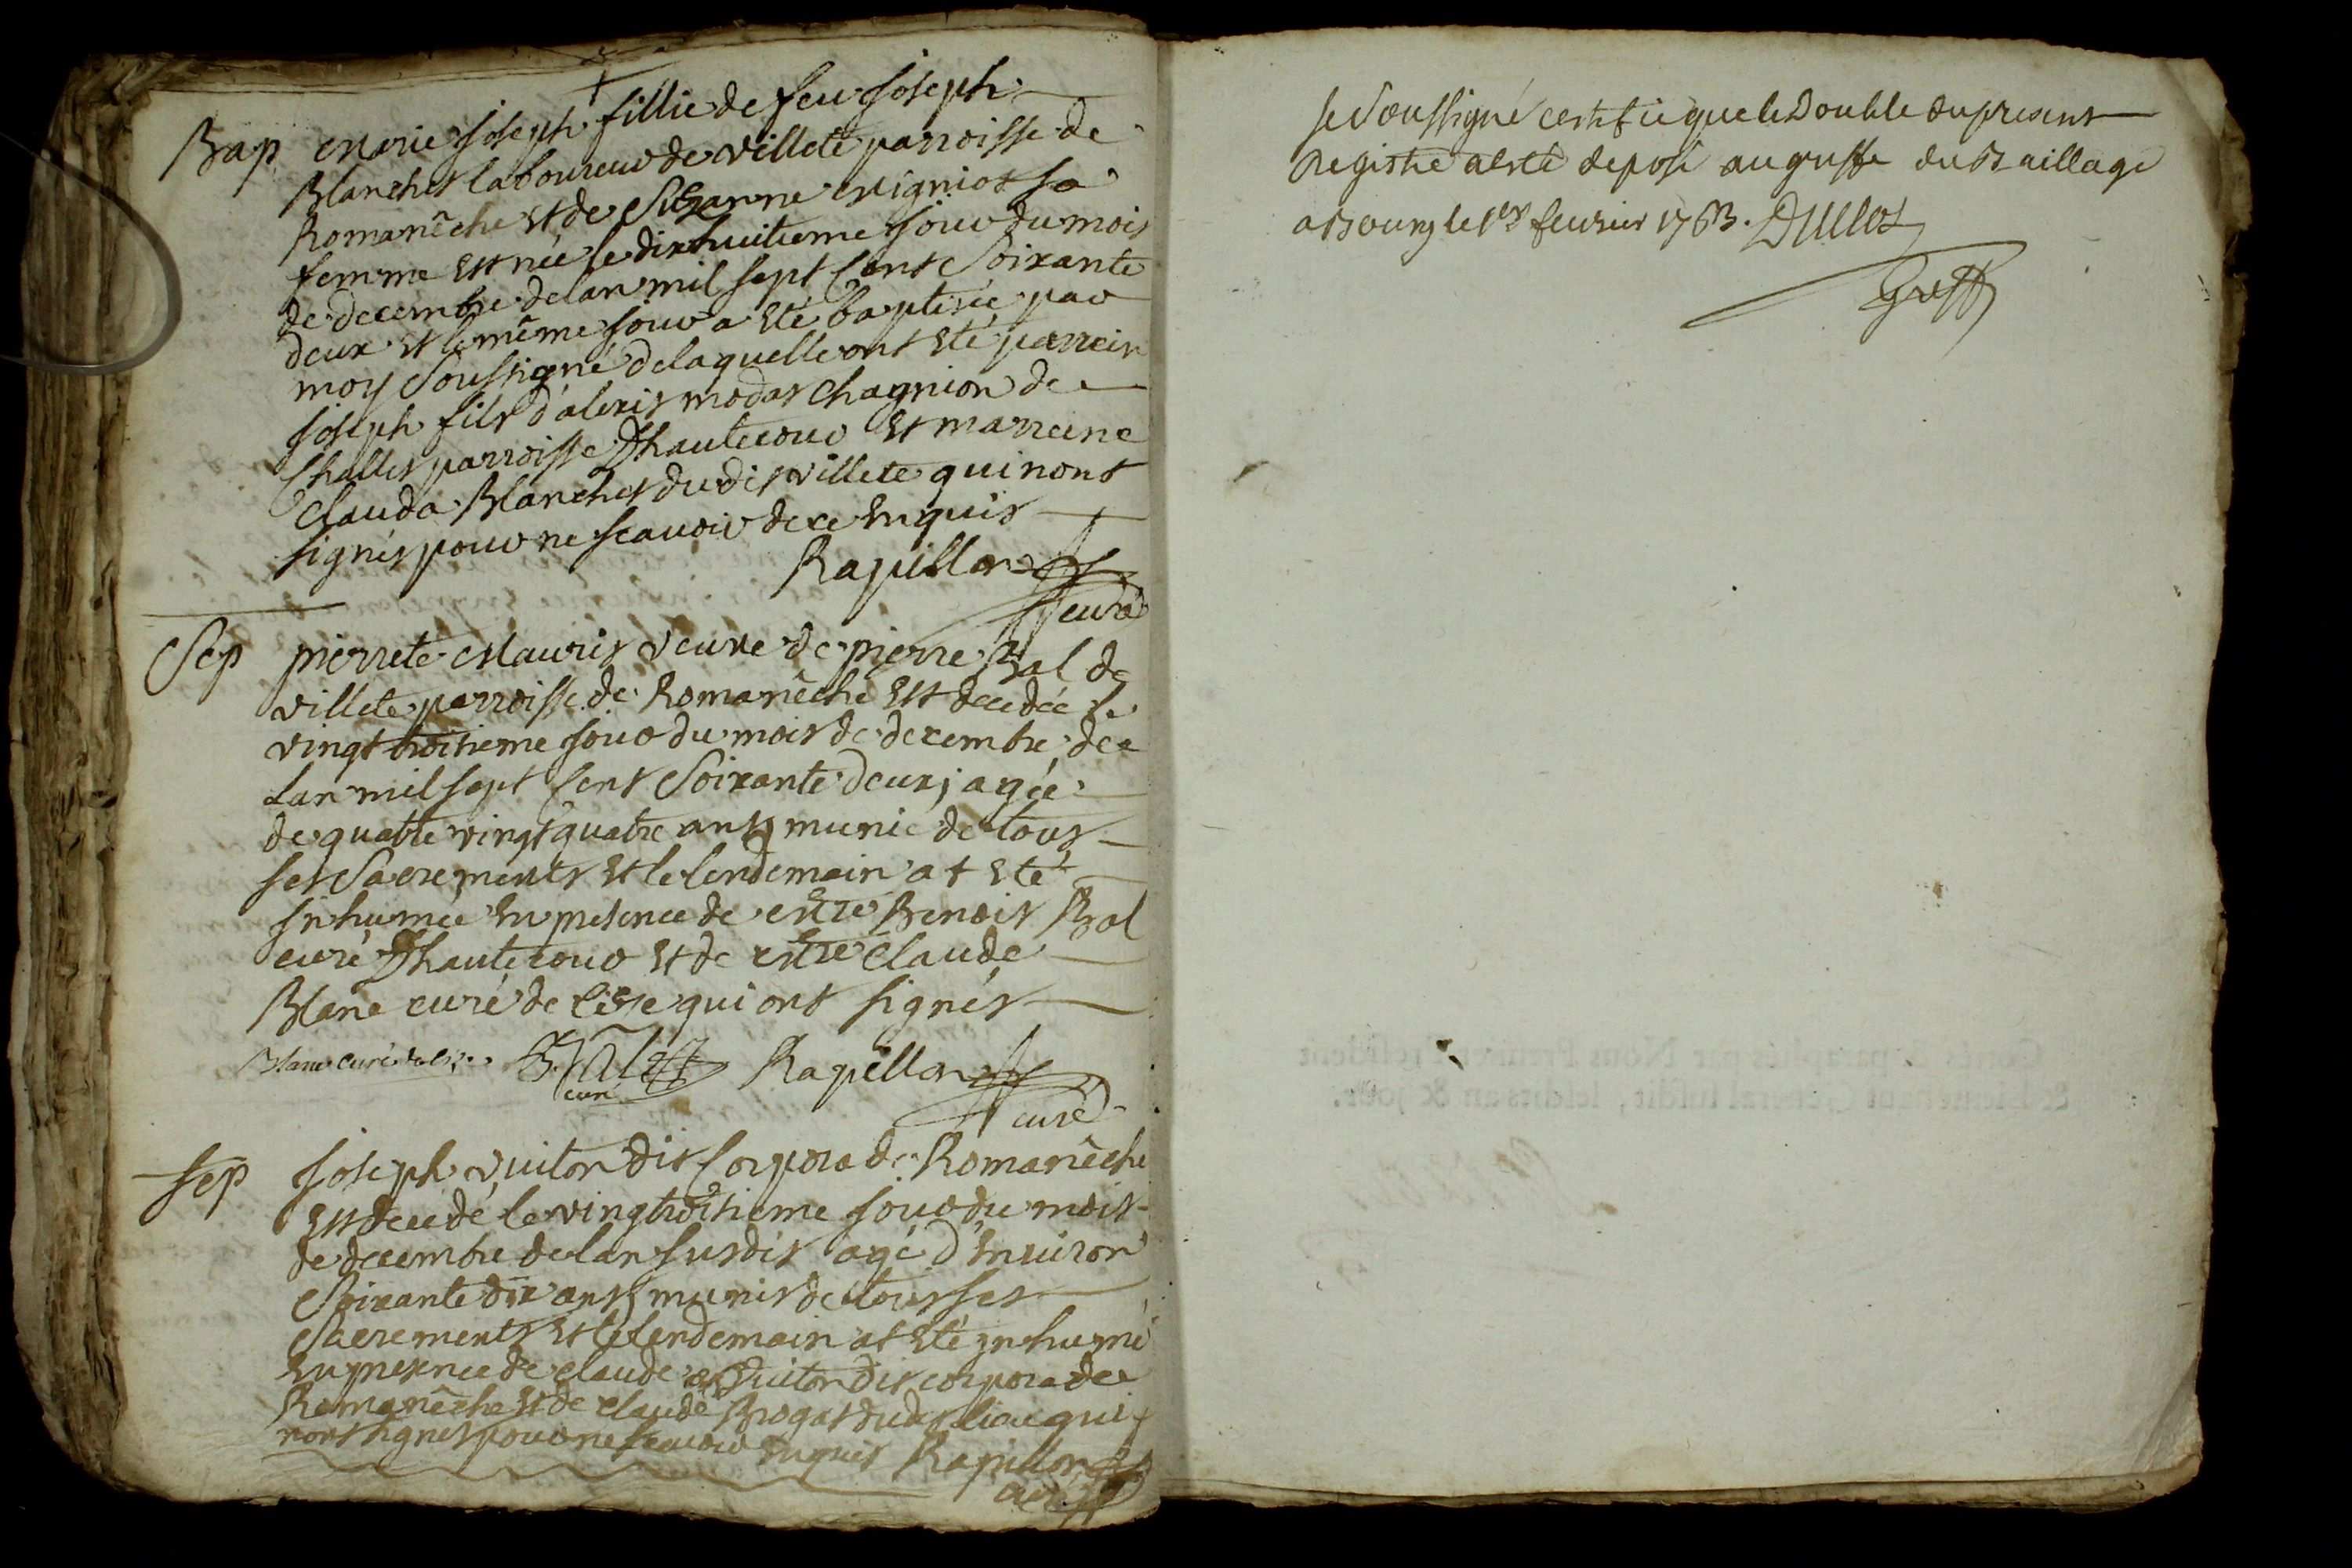 Bap Marie Joseph fillie de feu Joseph
Blanchet laboureur de villete parroisse de
Romanêche et de Suzanne Migniot sa
femme est née le dixhuitieme jour du mois
de decembre de lan mil sept cent soixante
deux et le même jour a eté baptisée par
moy soussigné de laquelle ont eté parrein
Joseph fils d'alexis modas chagnion de
Challes parroisse Dhautecour et marreine
Clauda Blanchet dudit villete qui nont
signés pour ne scavoir de ce enquis
Rapillon
curé
Sep pierrete Mauris veuve de pierre Bal de
villete parroisse de Romanêche est decedée le
vingt troisieme jour du mois de decembre de
lan mil sept cent soixante deux; agée
de quatre vingt quatre ans munie de tous
ses sacrements et le lendemain at eté
Inhumée en presence de Mre Benoit Bal
curé Dhautecour et de Mre Claude
Blanc curé de Cize qui ont signés
Blanc curé de Cize Bal Rapillon
curé
curé
Sep Joseph vuiton dit Corpora de Romanêche
est decedé le vingtroisieme jour du mois
de decembre de lan susdit agé d'environ
soixante dix ans munis de tous ses
sacrements et le lendemain at eté inhumé
en presence de claude vuiton dit corpora de
Romanêche et de claude Brogat dudit lieu qui
nont signés pour ne scavoir enquis Rapillon
curé
Je soussigné certifie que le Double du present
Registre a esté deposé au greffe du Baillage
a Bourg le 1er fevrier 1763.
Greff